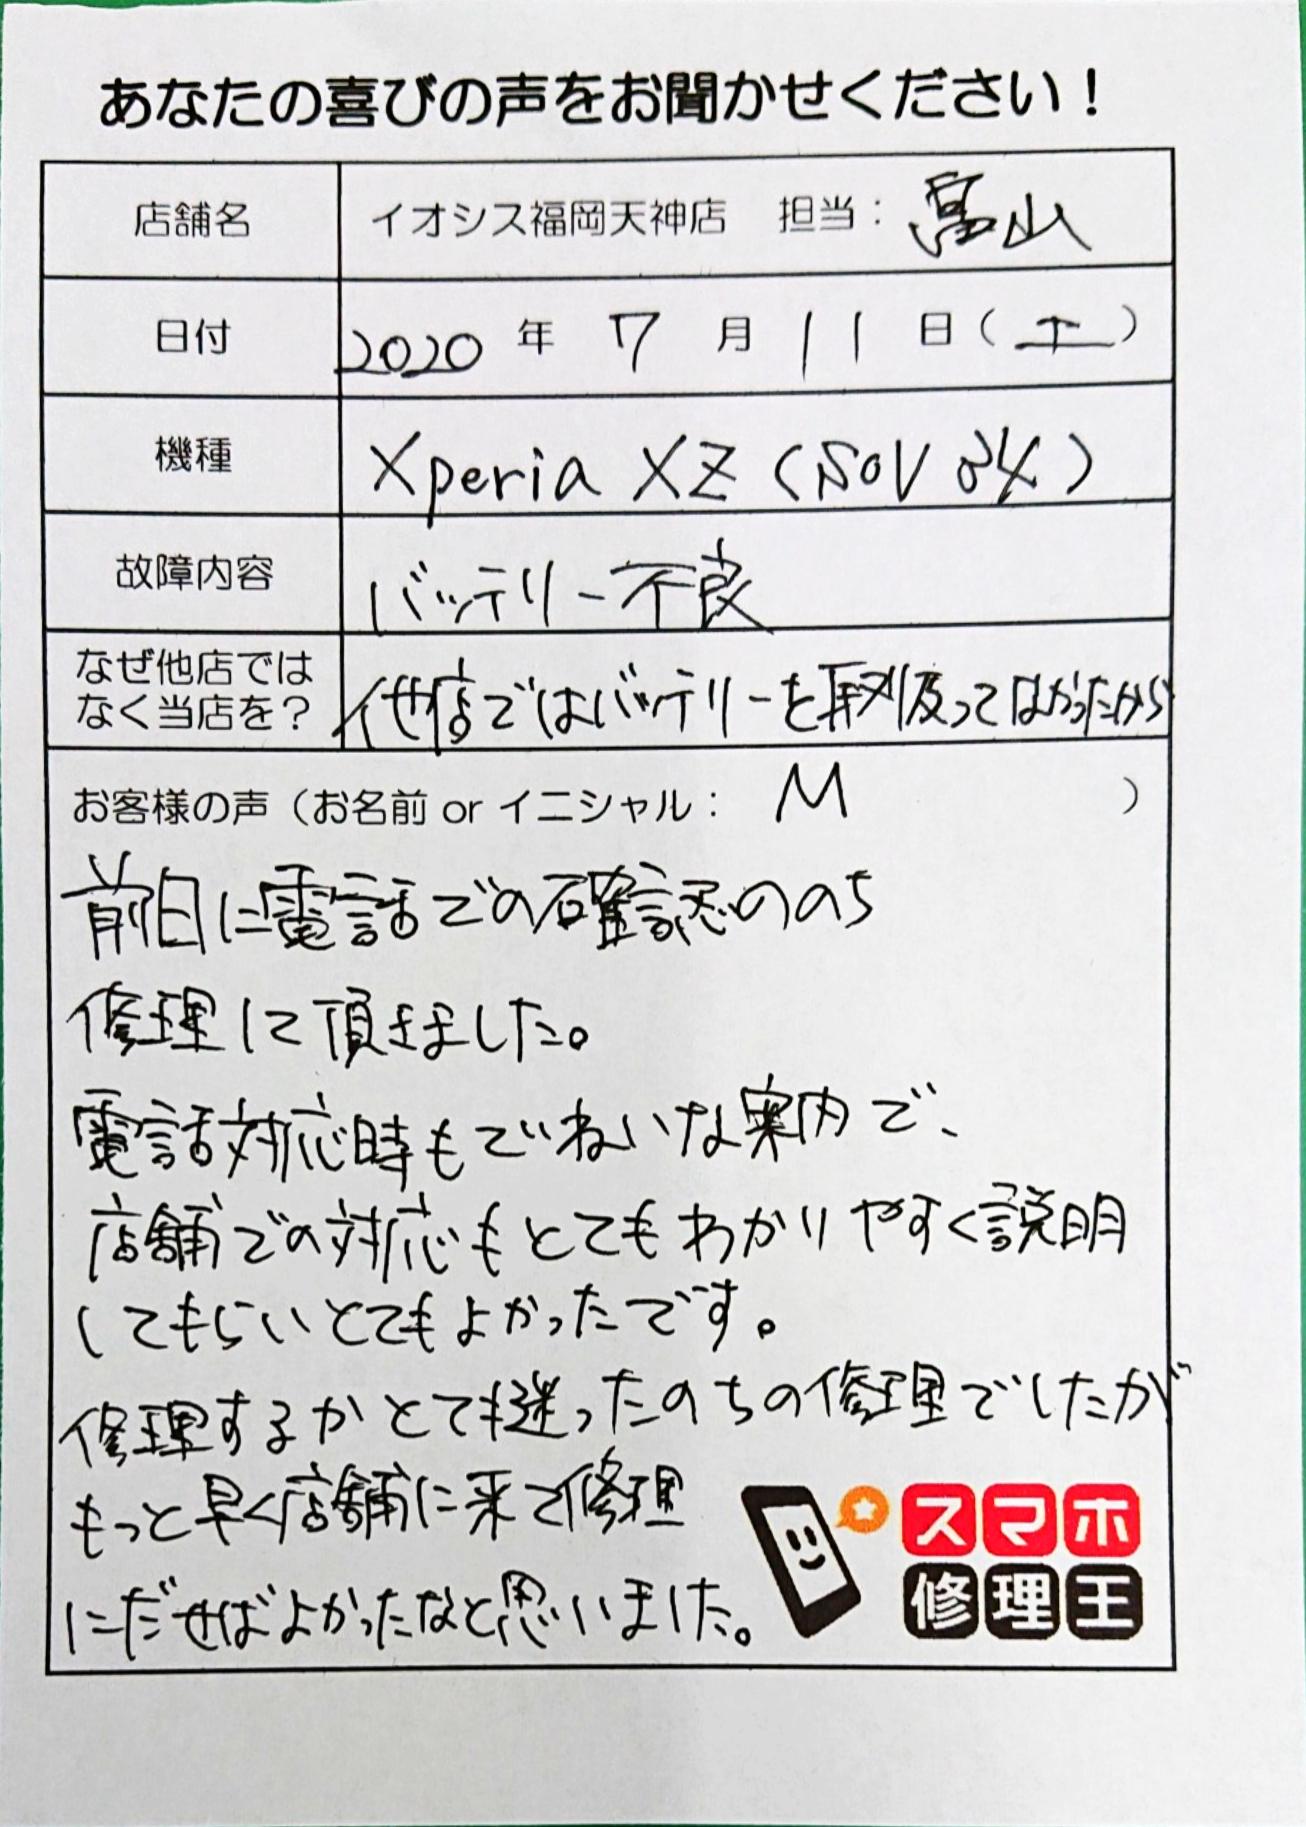 あなたの喜びの声をお聞かせください！
店舗名 イオシス福岡天神店 担当：富山
日付 2020年7月11日（土）
機種 Xperia XZ（SOV34）
故障内容 バッテリー不良
なぜ他店では
なく当店を？ 他店ではバッテリーを取扱ってなかったから
お客様の声（お名前 or イニシャル： M ）
前日に電話での確認ののち
修理にて頂きました。
電話対応時もていねいな案内で、
店舗での対応もとてもわかりやすく説明
してもらいとてもよかったです。
修理するかとても迷ったのちの修理でしたが
もっと早く店舗に来て修理
にだせばよかったなと思いました。
スマホ
修理王